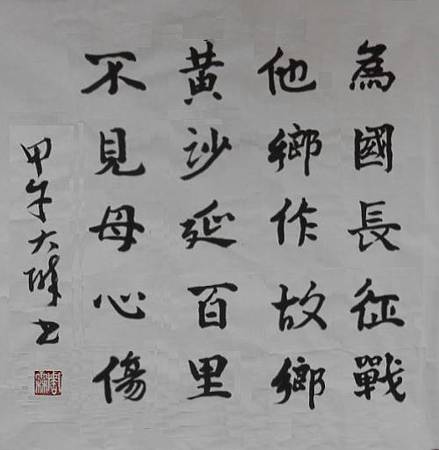 為國長征戰
他鄉作故鄉
黃沙延百里
不見母心傷
甲午大書